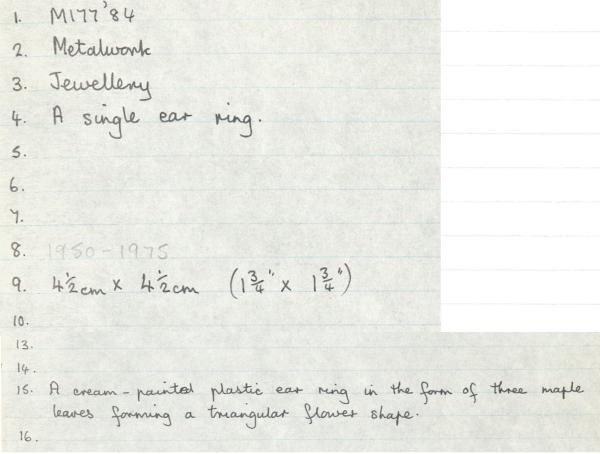 1. M177'84
2. Metalwork
3. Jewellery
4. A single ear ring.
5.
6.
7.
8. 1950-1975
9. 4½cm x 4½cm (1¾" x 1¾")
10.
13.
14.
15. A cream-painted plastic ear ring in the form of three maple
leaves forming a triangular flower shape.
16.